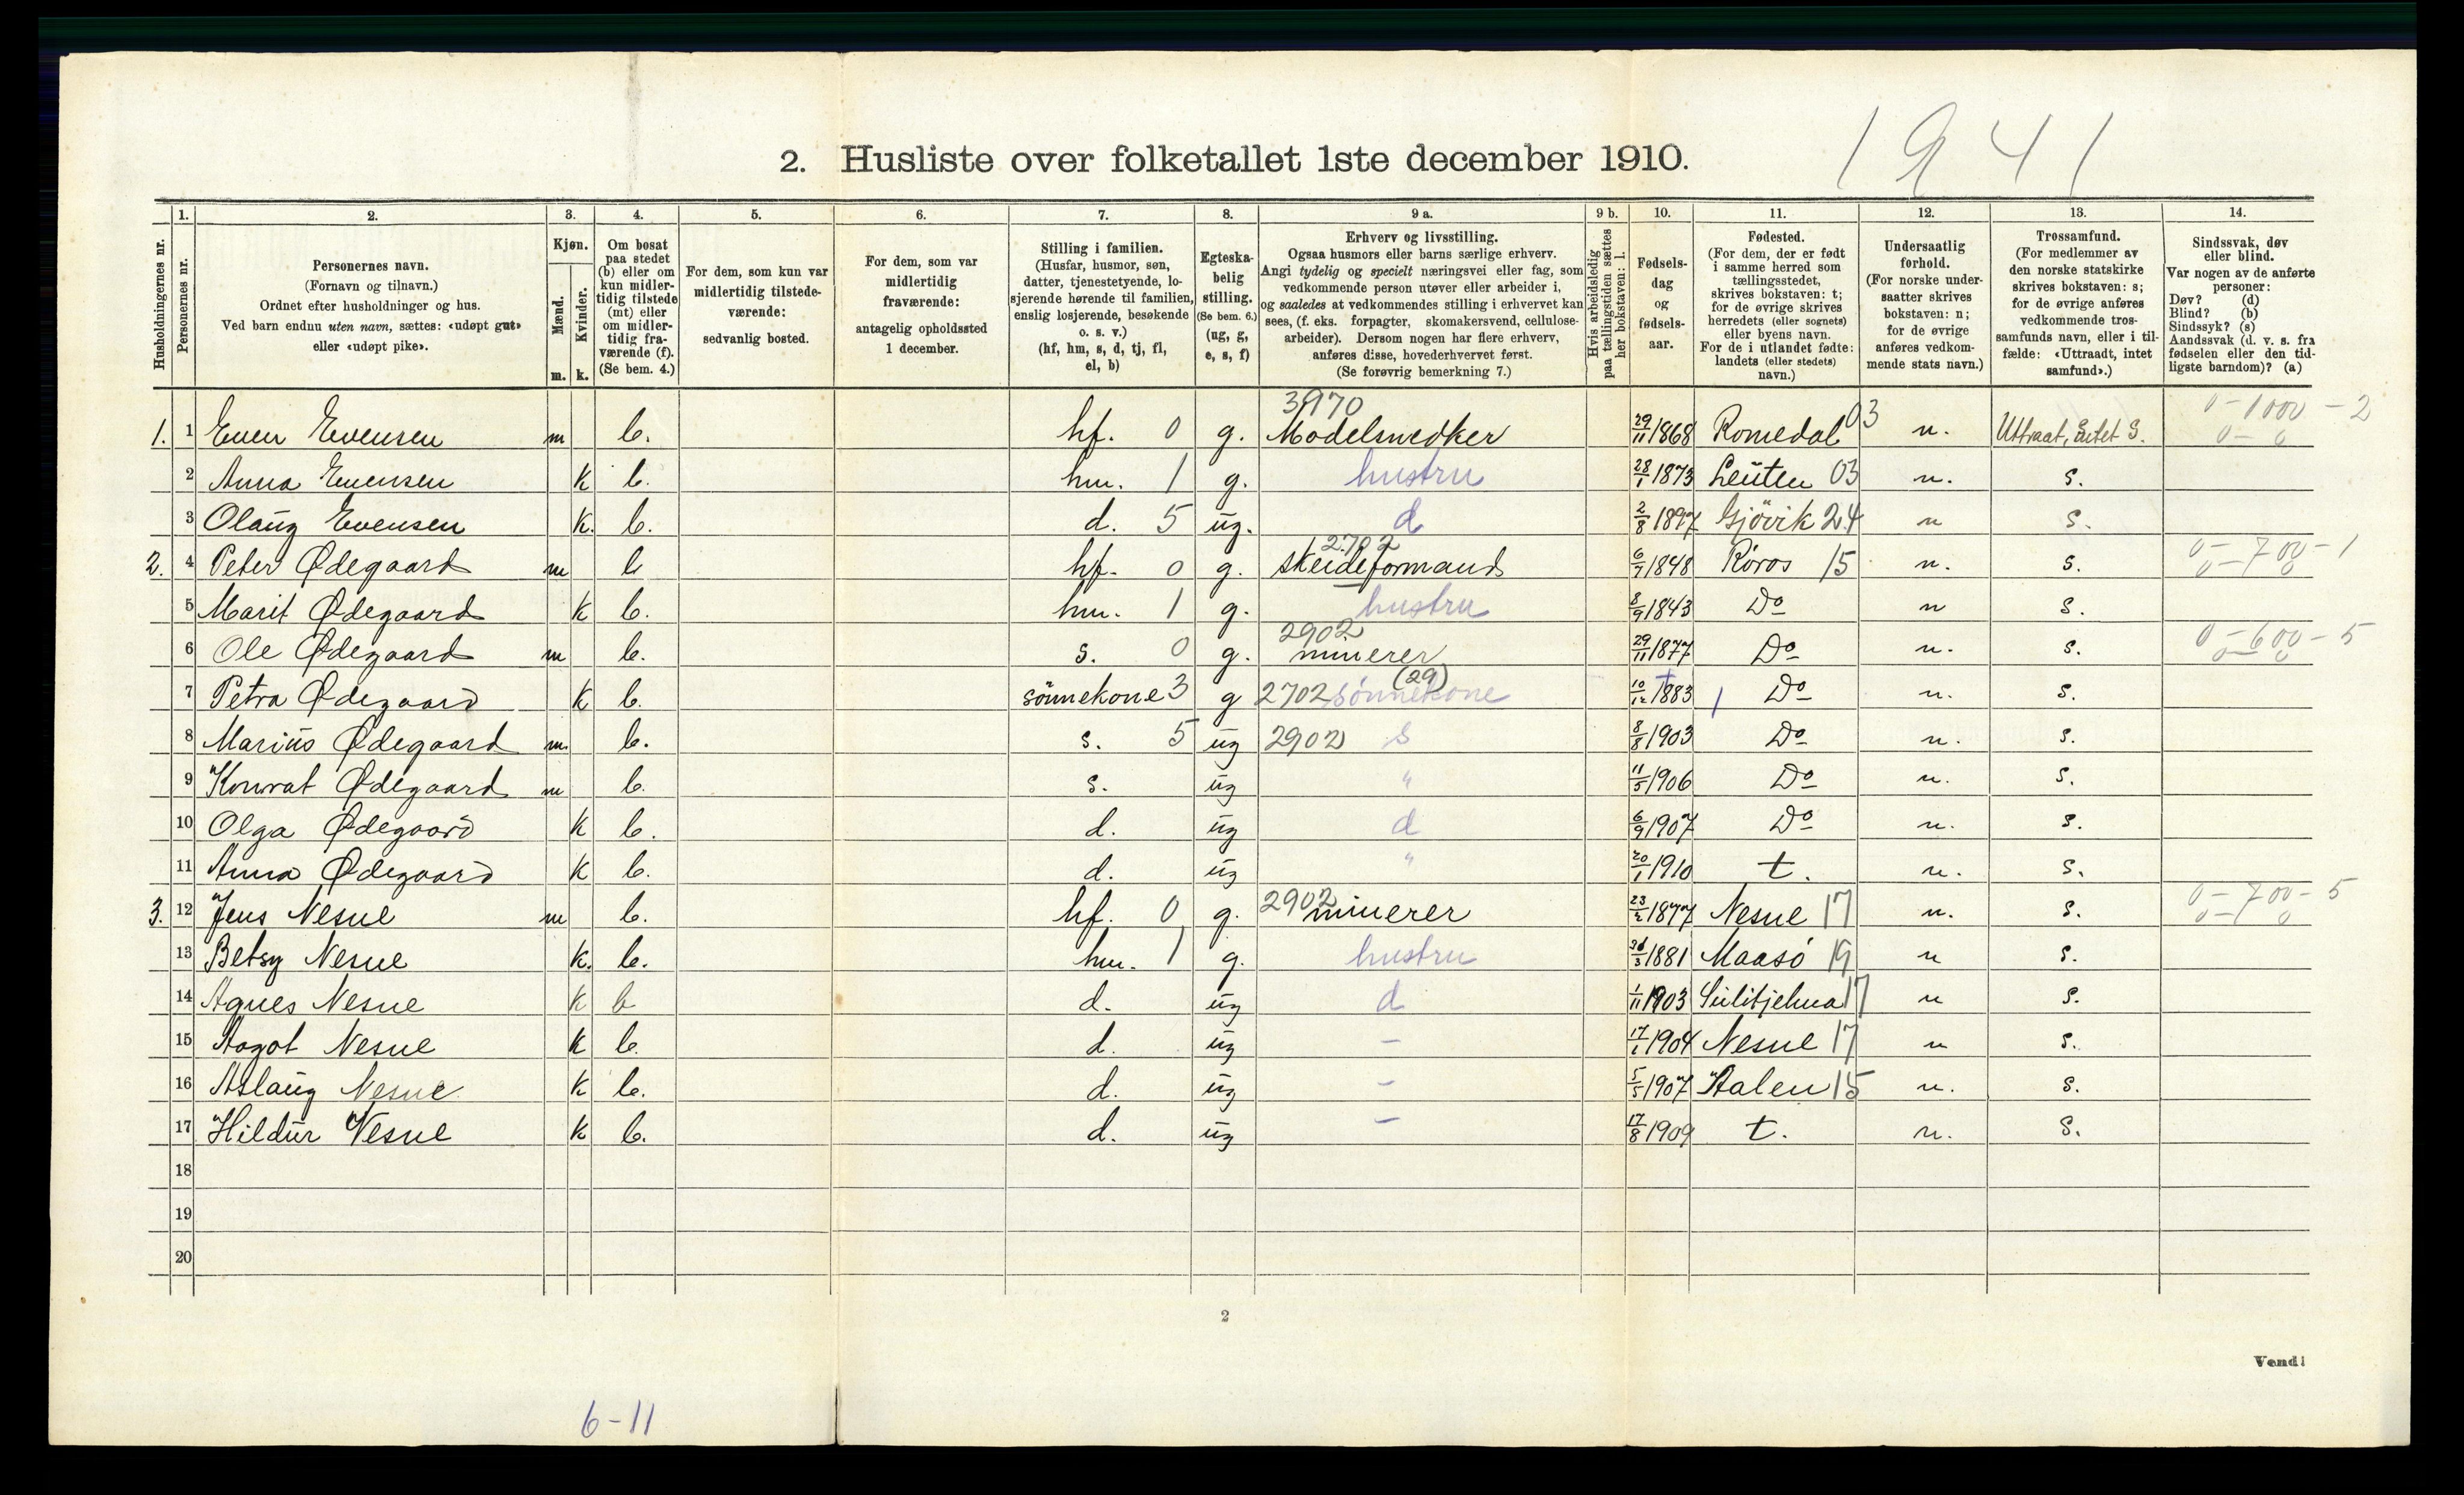 1941
2. Husliste over folketallet 1ste december 1910.
Husholdningernes nr.
1. Personernes nr.
2. Personernes navn. (Fornavn og tilnavn.) Ordnet efter husholdninger og hus. Ved barn endnu uten navn, sættes: «udøpt gut» eller «udøpt pike».
3. Kjøn. Mænd. m. Kvinder. k.
4. Om bosat paa stedet (b) eller om kun midlertidig tilstede (mt) eller om midlertidig fraværende (f). (Se bem. 4.)
5. For dem, som kun var midlertidig tilstedeværende: sedvanlig bosted.
6. For dem, som var midlertidig fraværende: antagelig opholdssted 1 december.
7. Stilling i familien. (Husfar, husmor, søn, datter, tjenestetyende, losjerende hørende til familien, enslig losjerende, besøkende o. s. v.) (hf, hm, s, d, tj, fl, el, b)
8. Egteskabelig stilling. (Se bem. 6.) (ug, g, e, s, f)
9 a. Erhverv og livsstilling. Ogsaa husmors eller barns særlige erhverv. Angi tydelig og specielt næringsvei eller fag, som vedkommende person utøver eller arbeider i, og saaledes at vedkommendes stilling i erhvervet kan sees, (f. eks. forpagter, skomakersvend, cellulosearbeider). Dersom nogen har flere erhverv, anføres disse, hovederhvervet først. (Se forøvrig bemerkning 7.)
9 b. Hvis arbeidsledig paa tællingstiden sættes her bokstaven: l.
10. Fødselsdag og fødselsaar.
11. Fødested. (For dem, der er født i samme herred som tællingsstedet, skrives bokstaven: t; for de øvrige skrives herredets (eller sognets) eller byens navn. For de i utlandet fødte: landets (eller stedets) navn.)
12. Undersaatlig forhold. (For norske undersaatter skrives bokstaven: n; for de øvrige anføres vedkommende stats navn.)
13. Trossamfund. (For medlemmer av den norske statskirke skrives bokstaven: s; for de øvrige anføres vedkommende trossamfunds navn, eller i tilfælde: «Uttraadt, intet samfund».)
14. Sindssvak, døv eller blind. Var nogen av de anførte personer: Døv? (d) Blind? (b) Sindssyk? (s) Aandssvak (d. v. s. fra fødselen eller den tidligste barndom)? (a)
1. 1 Even Evensen m b. hf. 0 g. 3970 Modelsnedker 29/11 1868 Romedal 03 n. Uttraat, Intet S. 0-1000-2 0-0
2 Anna Evensen k b. hm. 1 g. hustru 28/1 1873 Leuten 03 n. s.
3 Olaug Evensen k. b. d. 5 ug. d 2/8 1897 Gjövik 24 n s.
2. 4 Peter Ødegaard m b hf. 0 g. 2702 skeideformand 6/7 1848 Röros 15 n. s. 0-700-1 0-0
5 Marit Ødegaard k b. hm. 1 g. hustru 8/9 1843 Do n s.
6 Ole Ødegaard m b. s. 0 g. 2902 minerer 29/11 1877 Do n. s. 0-600-5 0-0
7 Petra Ødegaard k b. sönnekone 3 g 2702 sönnekone (29) 10/12 1883 Do n. s.
8 Marius Ødegaard m. b. s. 5 ug 2902 s 8/8 1903 Do n. s.
9 Konrat Ødegaard m b. s. ug " 11/5 1906 Do n. s.
10 Olga Ødegaard k b. d. ug d 6/9 1907 Do n. s.
11 Anna Ødegaard k b. d. ug " 20/1 1910 t. n. s.
3. 12 Jens Nesne m b. hf. 0 g. 2902 minerer 23/2 1877 Nesne 17 n. s. 0-700-5 0-0
13 Betsy Nesne k. b. hm. 1 g. hustru 1881 Maasö 19 n s.
14 Agnes Nesne k b d. ug d 1/11 1903 Sulitjelma 17 n s.
15 Aagot Nesne k b. d. ug - 17/1 1904 Nesne 17 n s.
16 Aslaug Nesne k b. d. ug - 5/5 1907 Aalen 15 n. s.
17 Hildur Nesne k b. d. ug - 17/8 1909 t. n. s.
18
19
20
2
Vend!
6-11